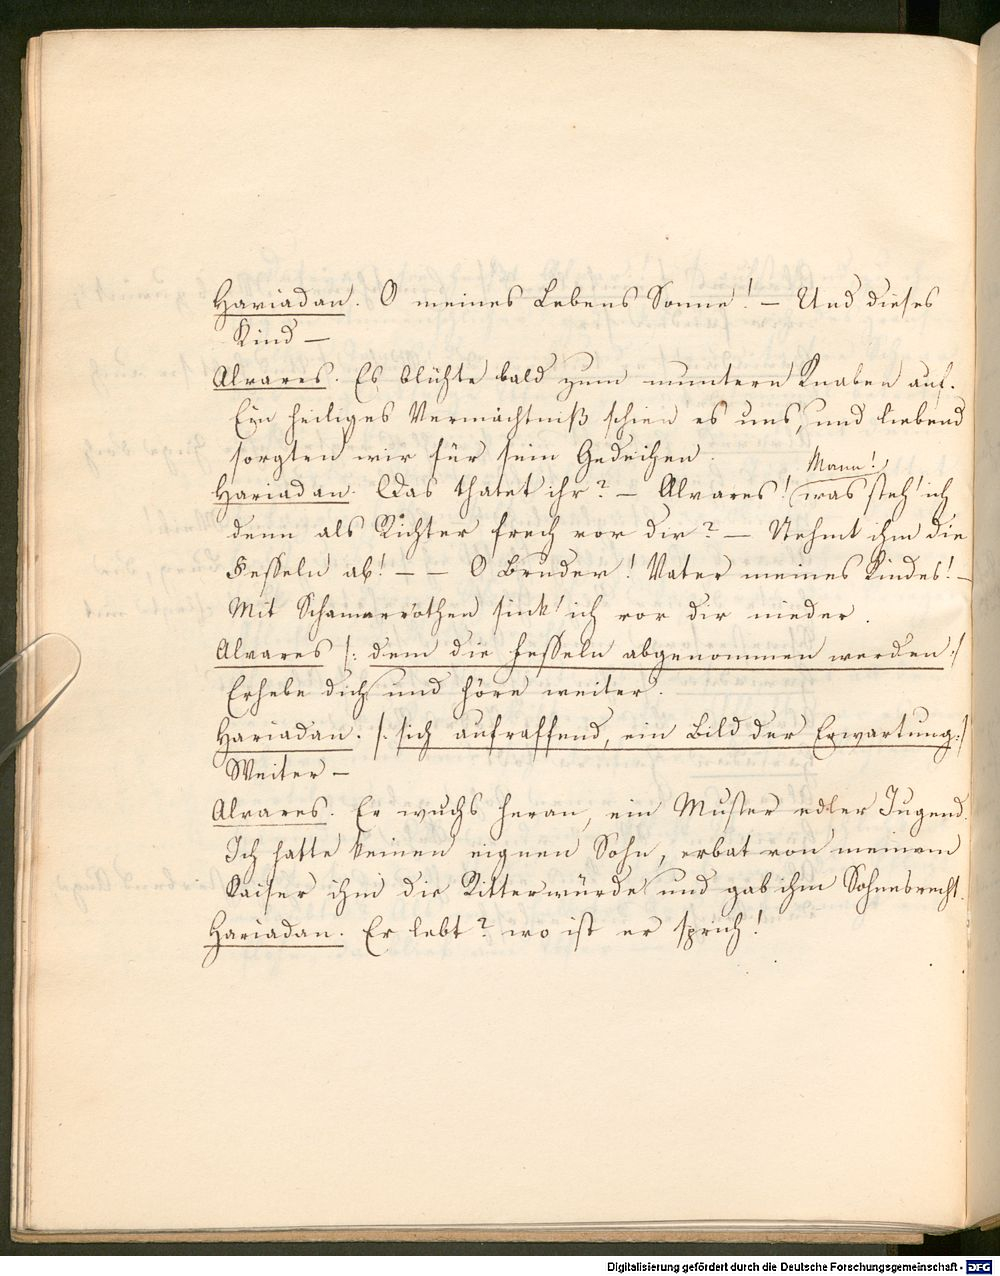 Hariadan. O meines Lebens Sonne! — Und dieses
Kind —
Alvares. Es blühte bald zum muntern Knaben auf.
Ein heiliges Vermächtniß schien es uns, und liebend
sorgten wir für sein Gedeihen.
Mann!
Hariadan. Das thatet ihr? — Alvares! was steh' ich
denn als Richter frech vor dir? — Nehmt ihm die
Fesseln ab! — — O Bruder! Vater meines Kindes! —
Mit Schamerröthen sink' ich vor dir nieder.
Alvares /: dem die Fesseln abgenommen werden :/
Erhebe dich und höre weiter.
Hariadan. /: sich aufraffend, ein Bild der Erwartung :/
Weiter —
Alvares. Er wuchs heran, ein Muster edler Jugend.
Ich hatte keinen eignen Sohn, erbat von meinem
Kaiser ihm die Ritterwürde und gab ihm Sohnesrecht.
Hariadan. Er lebt? wo ist er sprich!
Digitalisierung gefördert durch die Deutsche Forschungsgemeinschaft - DFG